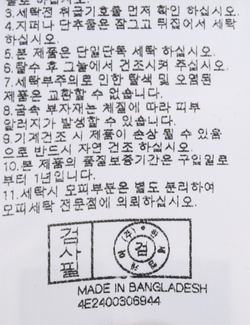 3.세탁전 취급기호를 먼저 확인 하십시오.
4.지퍼나 단추물은 잠그고 뒤집어서 세탁
하십시오.
5.본 제품은 단일단독 세탁 하십시오.
6.탈수 후 그늘에서 건조시켜 주십시오.
7.세탁부주의로 인한 탈색 및 오염된
제품은 교환할 수 없습니다.
8.금속 부자재는 체질에 따라 피부
알러지가 발생할 수 있습니다.
9.기계건조 시 제품이 손상 될 수 있음
으로 반드시 자연 건조 하십시오.
10.본 제품의 품질보증기간은 구입일로
부터 1년입니다.
11.세탁시 모피부분은 별도 분리하여
모피세탁 전문점에 의뢰하십시오.
검사필
검
MADE IN BANGLADESH
4E2400306944